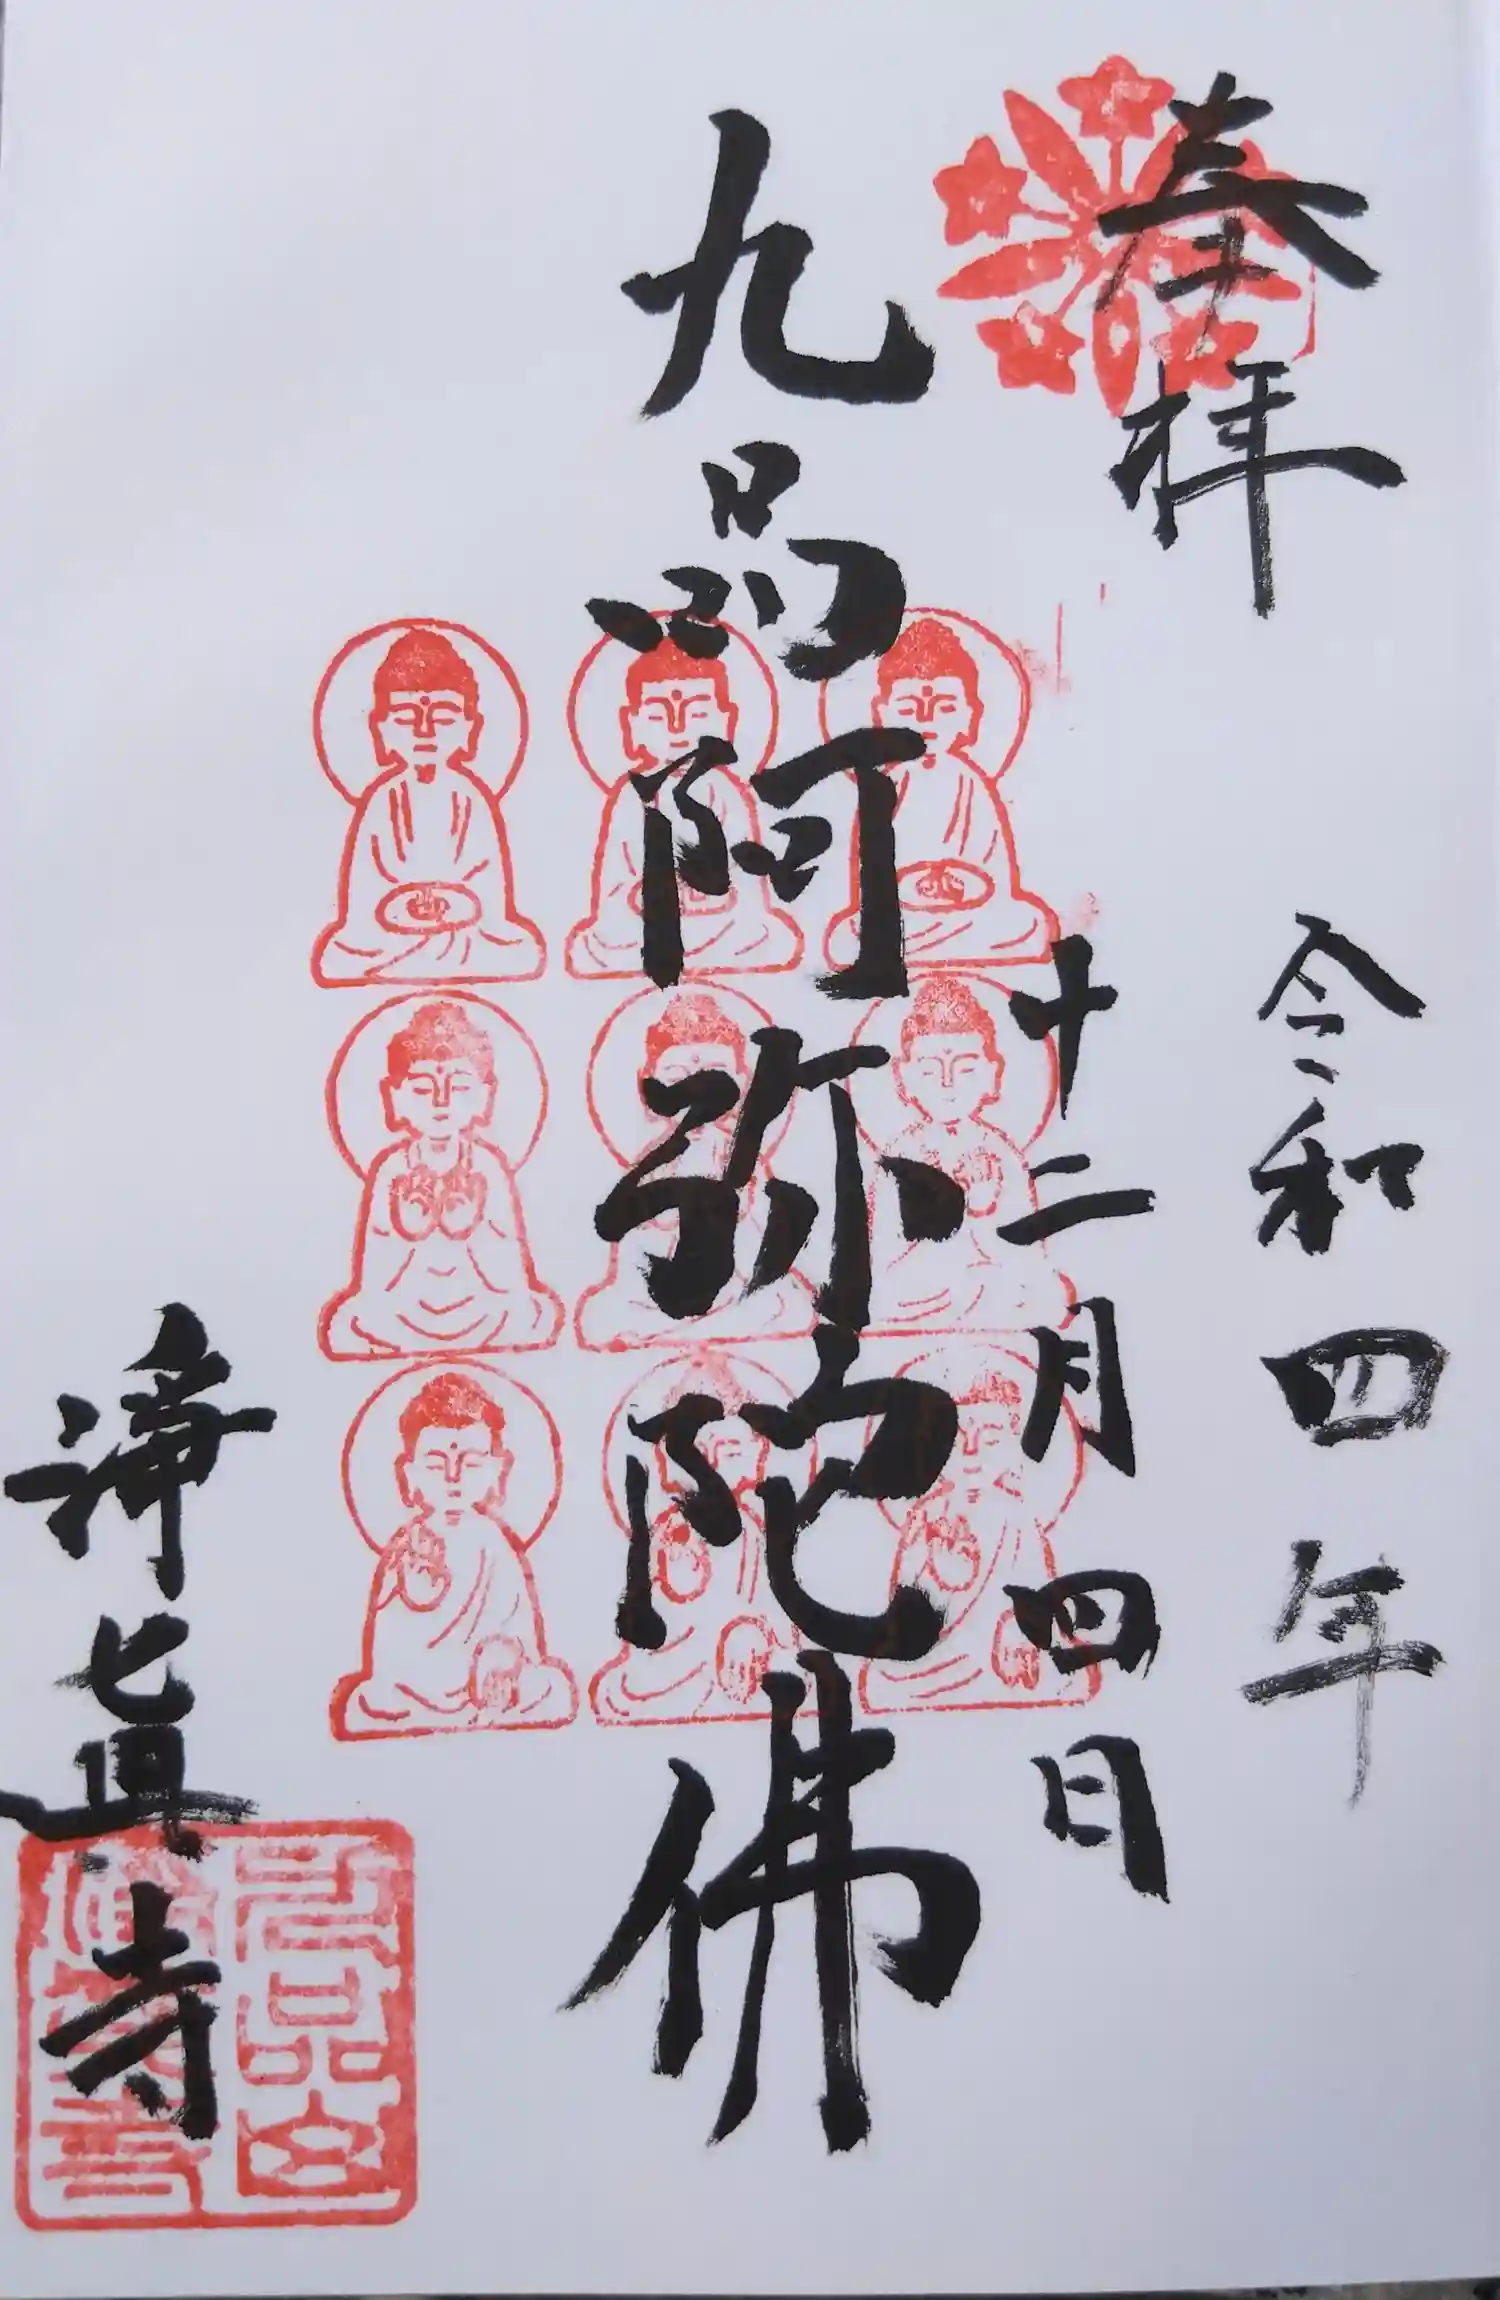 奉拝
令和四年
十二月四日
九品阿弥陀佛
淨真寺